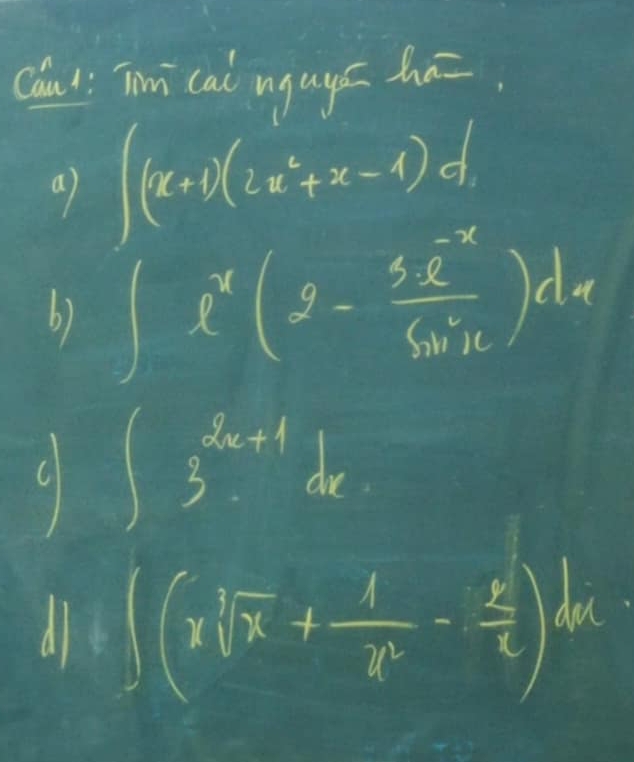 Câu 1: Tìm các nguyên hàm.
a) ∫(x+1)(2x²+x-1) d
b) ∫ eˣ (2 - 3.e⁻ˣ/sin²x) dx
c) ∫ 3²ˣ⁺¹ dx.
d) ∫(x∛x + 1/x² - 2/x) dx.